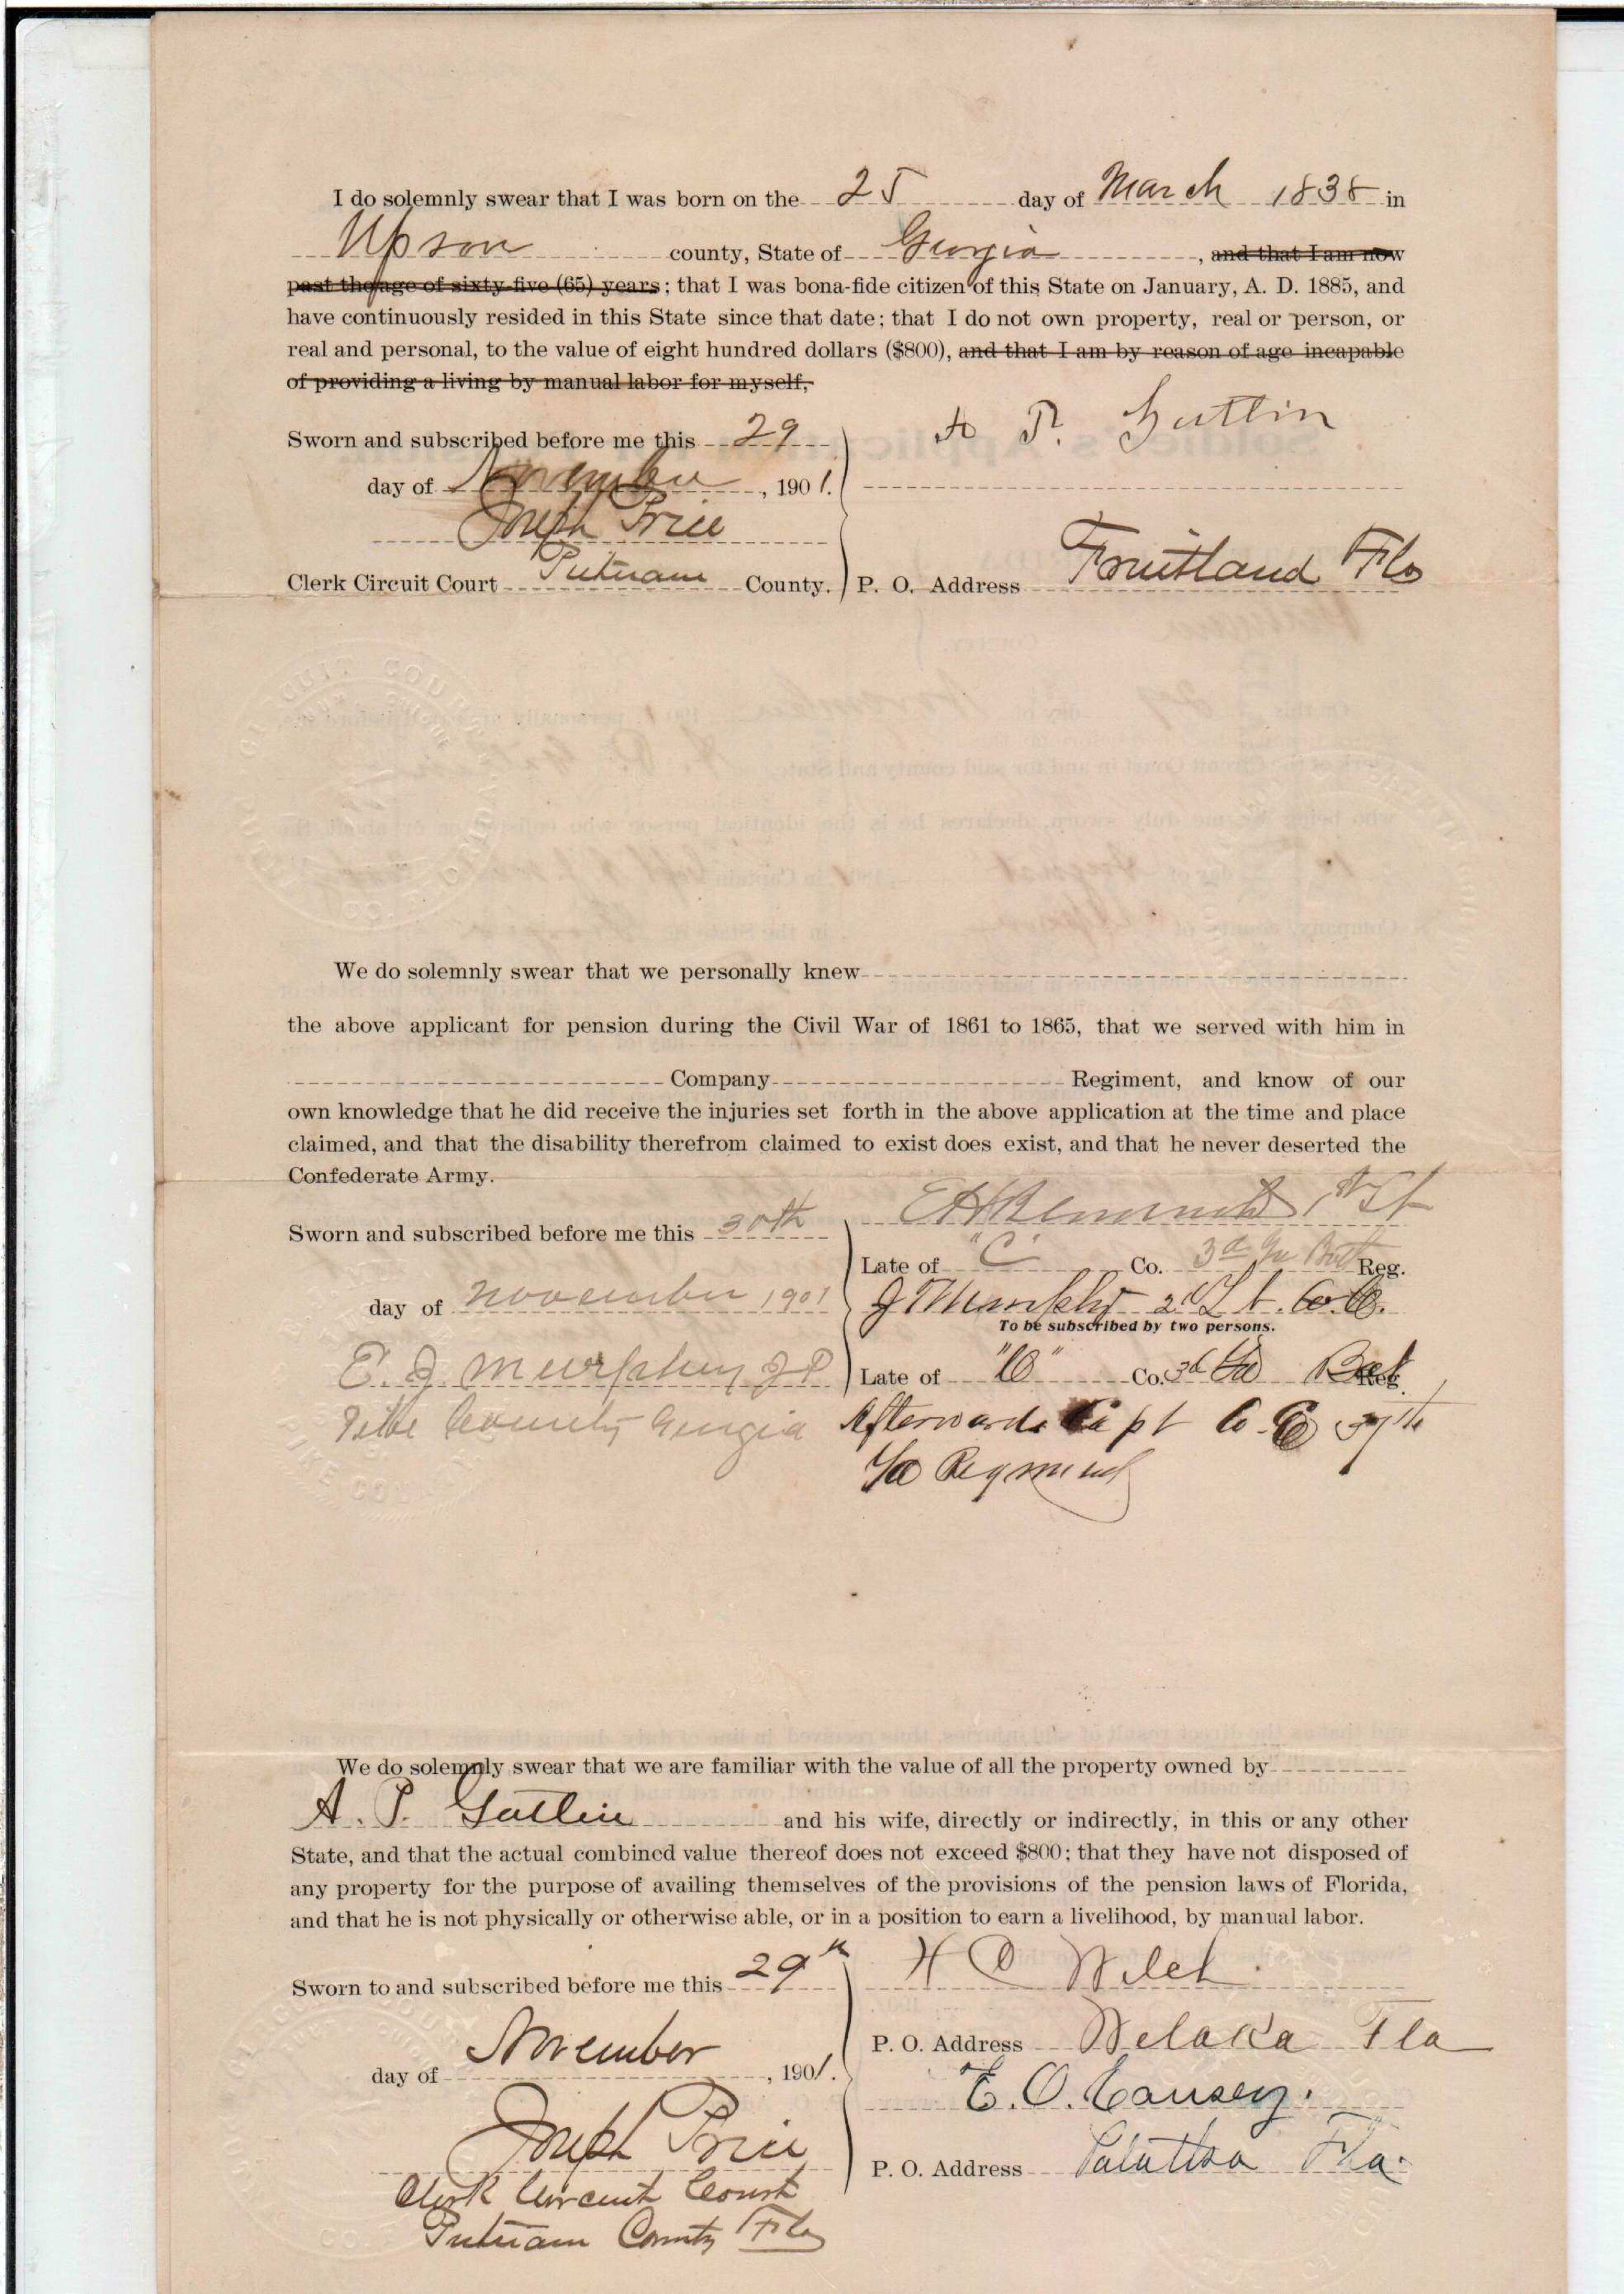 I do solemnly swear that I was born on the 25 day of March 1838 in
Upson county, State of Georgia, and that I am now
past the age of sixty-five (65) years; that I was bona-fide citizen of this State on January, A. D. 1885, and
have continuously resided in this State since that date; that I do not own property, real or person, or
real and personal, to the value of eight hundred dollars ($800), and that I am by reason of age incapable
of providing a living by manual labor for myself,
A P. Gatlin
Sworn and subscribed before me this 29
day of November, 1901.
Joseph Price
Clerk Circuit Court Putnam County.
P. O. Address Fruitland Fla
We do solemnly swear that we personally knew
the above applicant for pension during the Civil War of 1861 to 1865, that we served with him in
Company Regiment, and know of our
own knowledge that he did receive the injuries set forth in the above application at the time and place
claimed, and that the disability therefrom claimed to exist does exist, and that he never deserted the
Confederate Army.
Sworn and subscribed before me this 30th
day of November 1901
E. J. Murphey J P
Pike County Georgia
1st Lt
Late of "C" Co. 3d Ga Batt Reg.
J T Murphy 2d Lt. Co. C.
To be subscribed by two persons.
Late of "C" Co. 3d Ga Bat Reg.
Afterwards Capt Co. E 37th
Ga Regment
We do solemnly swear that we are familiar with the value of all the property owned by
A. P. Gatlin and his wife, directly or indirectly, in this or any other
State, and that the actual combined value thereof does not exceed $800; that they have not disposed of
any property for the purpose of availing themselves of the provisions of the pension laws of Florida,
and that he is not physically or otherwise able, or in a position to earn a livelihood, by manual labor.
Sworn to and subscribed before me this 29th
day of November, 1901.
Joseph Price
Clerk Circuit Court
Putnam County Fla
H C Welch
P. O. Address Welaka Fla
E. O. Causey.
P. O. Address Palatka Fla.